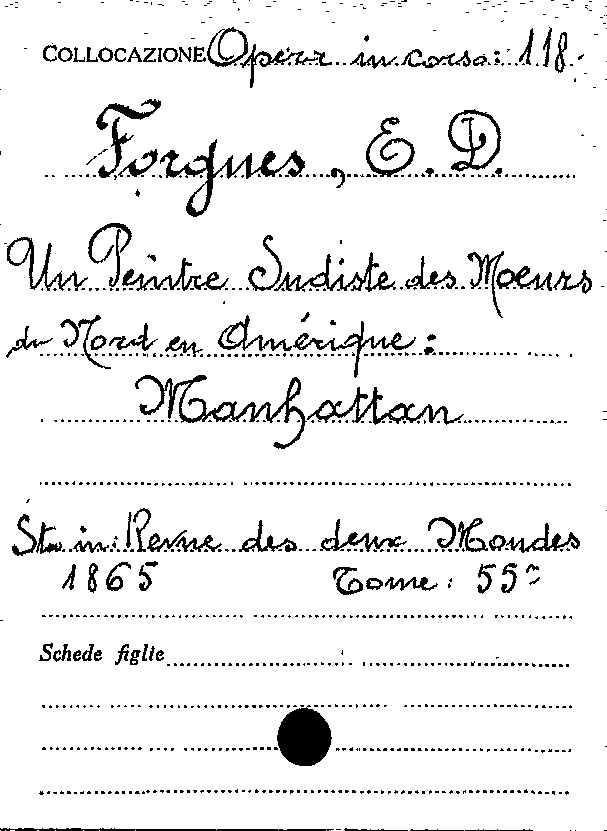 COLLOCAZIONE Opera in corso: 118.
Forgues, E. D.
Un Peintre Sudiste des Moeurs
du Nord en Amérique:
Manhattan
Sta in: Revue des deux Mondes
1865 Tome: 55°
Schede figlie